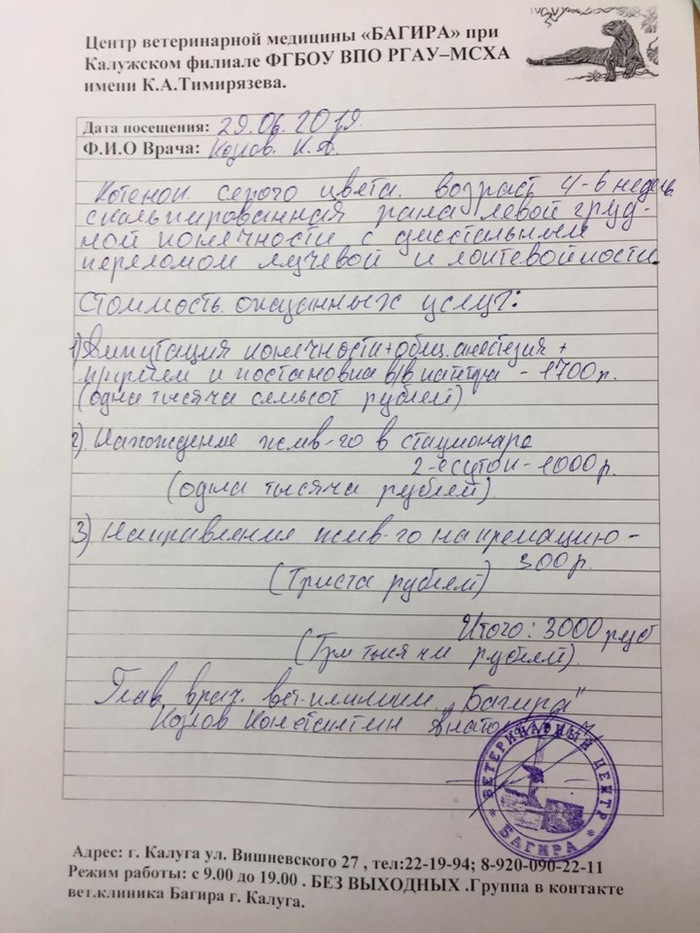 Центр ветеринарной медицины «БАГИРА» при
Калужском филиале ФГБОУ ВПО РГАУ–МСХА
имени К.А.Тимирязева.
Дата посещения: 29.06.2019.
Ф.И.О Врача: Козлов. К.А.
Котенок. серого цвета. возраст 4-6 недель.
скальпированная рана левой груд-
ной конечности с дистальным
переломом лучевой и локтевой кости.
Стоимость оказанных услуг:
1) Ампутация конечности + общ. анестезия +
прием и постановка в/в катетра - 1700 р.
(одна тысяча семьсот рублей)
2). Нахождение жив-го в стационаре
2-е суток - 1000 р.
(одна тысяча рублей)
3) Направление жив-го на кремацию -
300 р.
(Триста рублей)
Итого: 3000 руб
(Три тысячи рублей).
Глав. врач. вет. клиники „Багира"
Козлов Константин
ВЕТЕРИНАРНЫЙ ЦЕНТР
БАГИРА
Адрес: г. Калуга ул. Вишневского 27 , тел:22-19-94; 8-920-090-22-11
Режим работы: с 9.00 до 19.00 . БЕЗ ВЫХОДНЫХ .Группа в контакте
вет.клиника Багира г. Калуга.